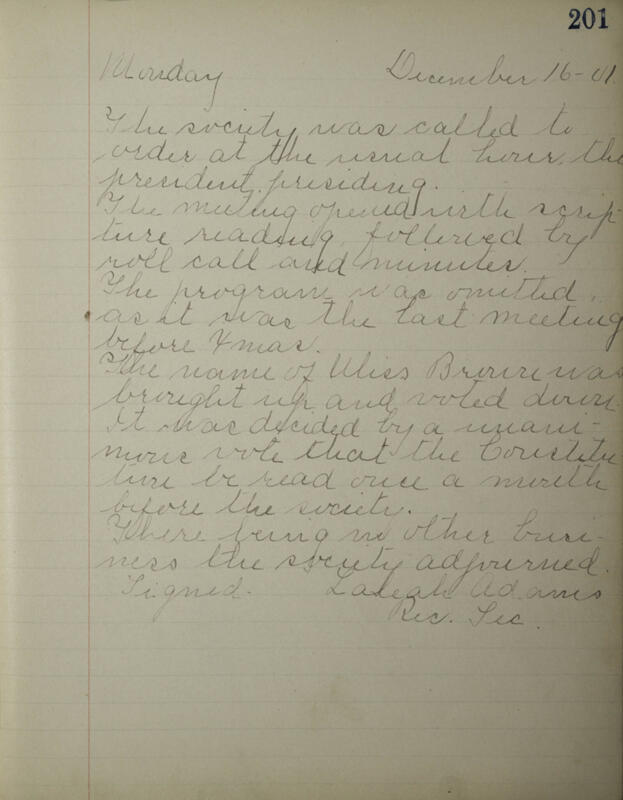 201
Monday December 16-01
The society was called to
order at the usual hour, the
president, presiding.
The meeting opened with scrip-
ture reading, followed by
roll call and minutes.
The program was omitted,
as it was the last meeting
before Xmas.
The name of Miss Brown was
brought up and voted down.
It was decided by a unani-
mous vote that the Constitu
tion be read once a month
before the society.
There being no other busi-
ness the society adjourned.
Signed. Adams
Rec. Sec.